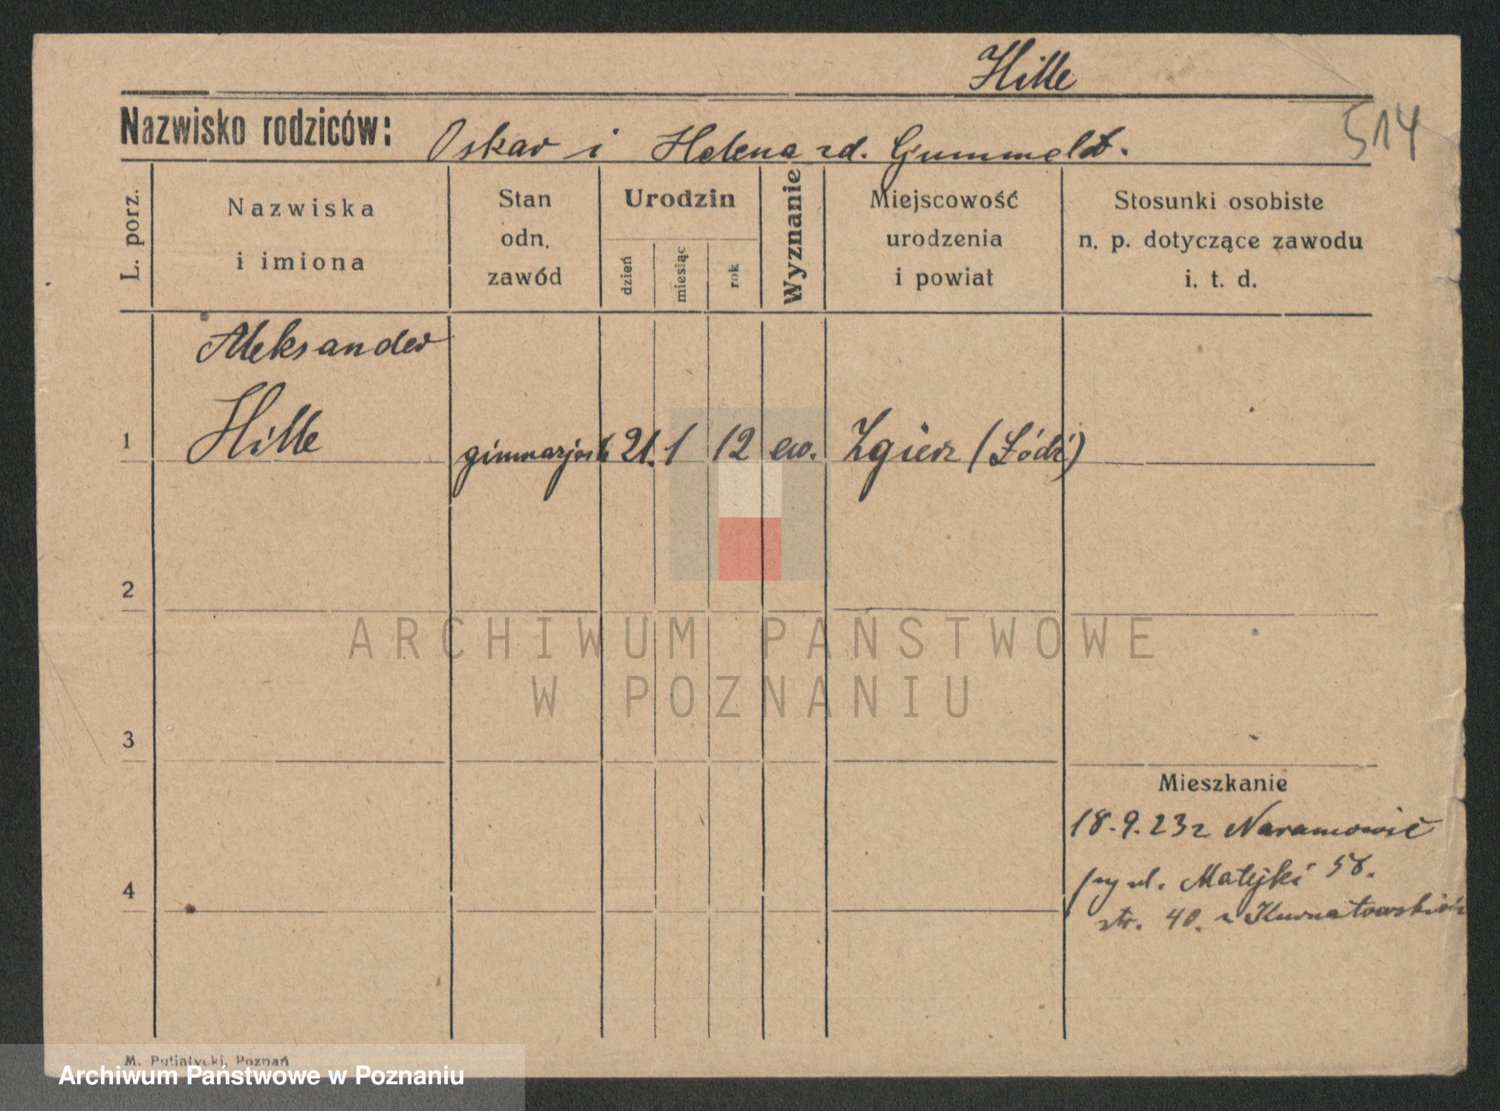 Hille
514
Nazwisko rodziców: Oskar i Helena zd. Gummelt.
L. porz.
Nazwiska
i imiona
Stan
odn.
zawód
Urodzin
dzień
miesiąc
rok
Wyznanie
Miejscowość
urodzenia
i powiat
Stosunki osobiste
n. p. dotyczące zawodu
i. t. d.
Aleksander
1 Hille gimnazjast 21. 1 12 ew. Zgierz (Łódź)
2
3
4
Mieszkanie
18.9.23 z Naramowic
ul. Matejki 58.
str. 40. z
ARCHIWUM PAŃSTWOWE
W POZNANIU
M. Putiatycki, Poznań
Archiwum Państwowe w Poznaniu